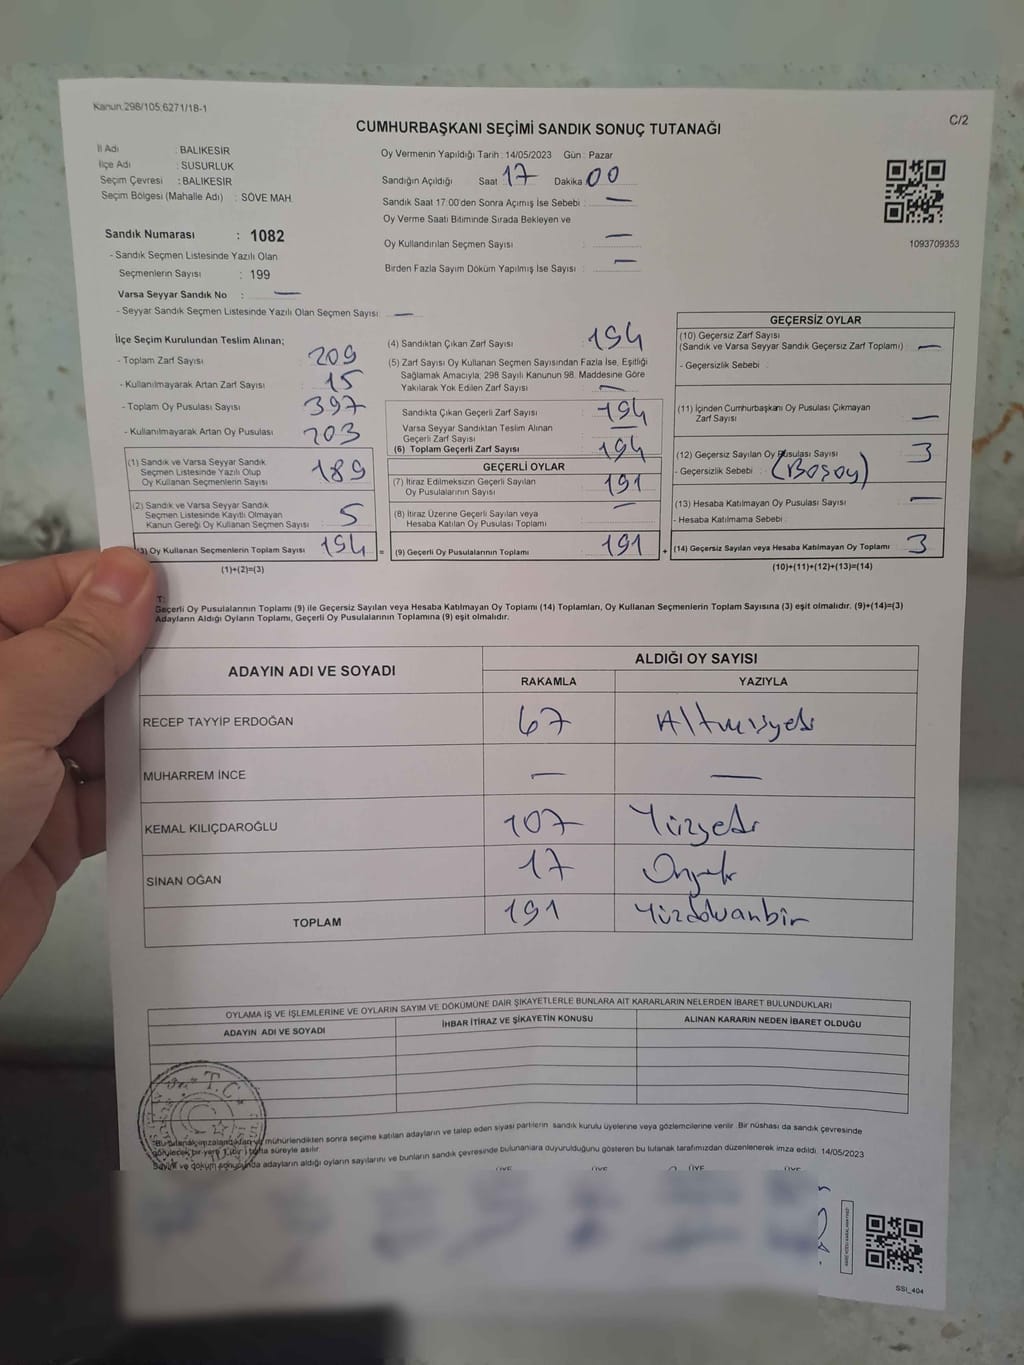 Kanun.298/105.6271/18-1
C/2
CUMHURBAŞKANI SEÇİMİ SANDIK SONUÇ TUTANAĞI
İl Adı : BALIKESİR
İlçe Adı : SUSURLUK
Seçim Çevresi : BALIKESİR
Seçim Bölgesi (Mahalle Adı) : SÖVE MAH.
Sandık Numarası : 1082
- Sandık Seçmen Listesinde Yazılı Olan
Seçmenlerin Sayısı : 199
Varsa Seyyar Sandık No : —
- Seyyar Sandık Seçmen Listesinde Yazılı Olan Seçmen Sayısı —
Oy Vermenin Yapıldığı Tarih : 14/05/2023 Gün : Pazar
Sandığın Açıldığı Saat : 17 Dakika 00
Sandık Saat 17:00'den Sonra Açımış İse Sebebi : —
Oy Verme Saati Bitiminde Sırada Bekleyen ve
Oy Kullandırılan Seçmen Sayısı : —
Birden Fazla Sayım Döküm Yapılmış İse Sayısı : —
1093709353
İlçe Seçim Kurulundan Teslim Alınan;
- Toplam Zarf Sayısı : 209
- Kullanılmayarak Artan Zarf Sayısı : 15
- Toplam Oy Pusulası Sayısı : 397
- Kullanılmayarak Artan Oy Pusulası : 203
(1) Sandık ve Varsa Seyyar Sandık
Seçmen Listesinde Yazılı Olup
Oy Kullanan Seçmenlerin Sayısı : 189
(2) Sandık ve Varsa Seyyar Sandık
Seçmen Listesinde Kayıtlı Olmayan
Kanun Gereği Oy Kullanan Seçmen Sayısı : 5
(3) Oy Kullanan Seçmenlerin Toplam Sayısı 194 =
(1)+(2)=(3)
(4) Sandıktan Çıkan Zarf Sayısı : 194
(5) Zarf Sayısı Oy Kullanan Seçmen Sayısından Fazla İse, Eşitliği
Sağlamak Amacıyla; 298 Sayılı Kanunun 98. Maddesine Göre
Yakılarak Yok Edilen Zarf Sayısı : —
Sandıkta Çıkan Geçerli Zarf Sayısı : 194
Varsa Seyyar Sandıktan Teslim Alınan
Geçerli Zarf Sayısı : —
(6) Toplam Geçerli Zarf Sayısı : 194
GEÇERLİ OYLAR
(7) İtiraz Edilmeksizin Geçerli Sayılan
Oy Pusulalarının Sayısı : 191
(8) İtiraz Üzerine Geçerli Sayılan veya
Hesaba Katılan Oy Pusulası Toplamı : —
(9) Geçerli Oy Pusulalarının Toplamı : 191 +
GEÇERSİZ OYLAR
(10) Geçersiz Zarf Sayısı
(Sandık ve Varsa Seyyar Sandık Geçersiz Zarf Toplamı) : —
- Geçersizlik Sebebi :
(11) İçinden Cumhurbaşkanı Oy Pusulası Çıkmayan
Zarf Sayısı : —
(12) Geçersiz Sayılan Oy Pusulası Sayısı : 3
- Geçersizlik Sebebi : (Boşoy)
(13) Hesaba Katılmayan Oy Pusulası Sayısı : —
- Hesaba Katılmama Sebebi :
(14) Geçersiz Sayılan veya Hesaba Katılmayan Oy Toplamı : 3
(10)+(11)+(12)+(13)=(14)
T:
Geçerli Oy Pusulalarının Toplamı (9) ile Geçersiz Sayılan veya Hesaba Katılmayan Oy Toplamı (14) Toplamları, Oy Kullanan Seçmenlerin Toplam Sayısına (3) eşit olmalıdır. (9)+(14)=(3)
Adayların Aldığı Oyların Toplamı, Geçerli Oy Pusulalarının Toplamına (9) eşit olmalıdır.
ADAYIN ADI VE SOYADI ALDIĞI OY SAYISI
RAKAMLA YAZIYLA
RECEP TAYYİP ERDOĞAN 67 Altmışyedi
MUHARREM İNCE — —
KEMAL KILIÇDAROĞLU 107 Yüzyedi
SİNAN OĞAN 17 Onyedi
TOPLAM 191 Yüzdoksanbir
OYLAMA İŞ VE İŞLEMLERİNE VE OYLARIN SAYIM VE DÖKÜMÜNE DAİR ŞİKAYETLERLE BUNLARA AİT KARARLARIN NELERDEN İBARET BULUNDUKLARI
ADAYIN ADI VE SOYADI İHBAR İTİRAZ VE ŞİKAYETİN KONUSU ALINAN KARARIN NEDEN İBARET OLDUĞU
T.C.
Bu tutanak imzalandıktan ve mühürlendikten sonra seçime katılan adayların ve talep eden siyasi partilerin sandık kurulu üyelerine veya gözlemcilerine verilir. Bir nüshası da sandık çevresinde
görülecek bir yere 1 (bir) hafta süreyle asılır.
Sayım ve döküm sonucunda adayların aldığı oyların sayılarını ve bunların sandık çevresinde bulunanlara duyurulduğunu gösteren bu tutanak tarafımızdan düzenlenerek imza edildi. 14/05/2023
ÜYE ÜYE ÜYE ÜYE
SSI_404